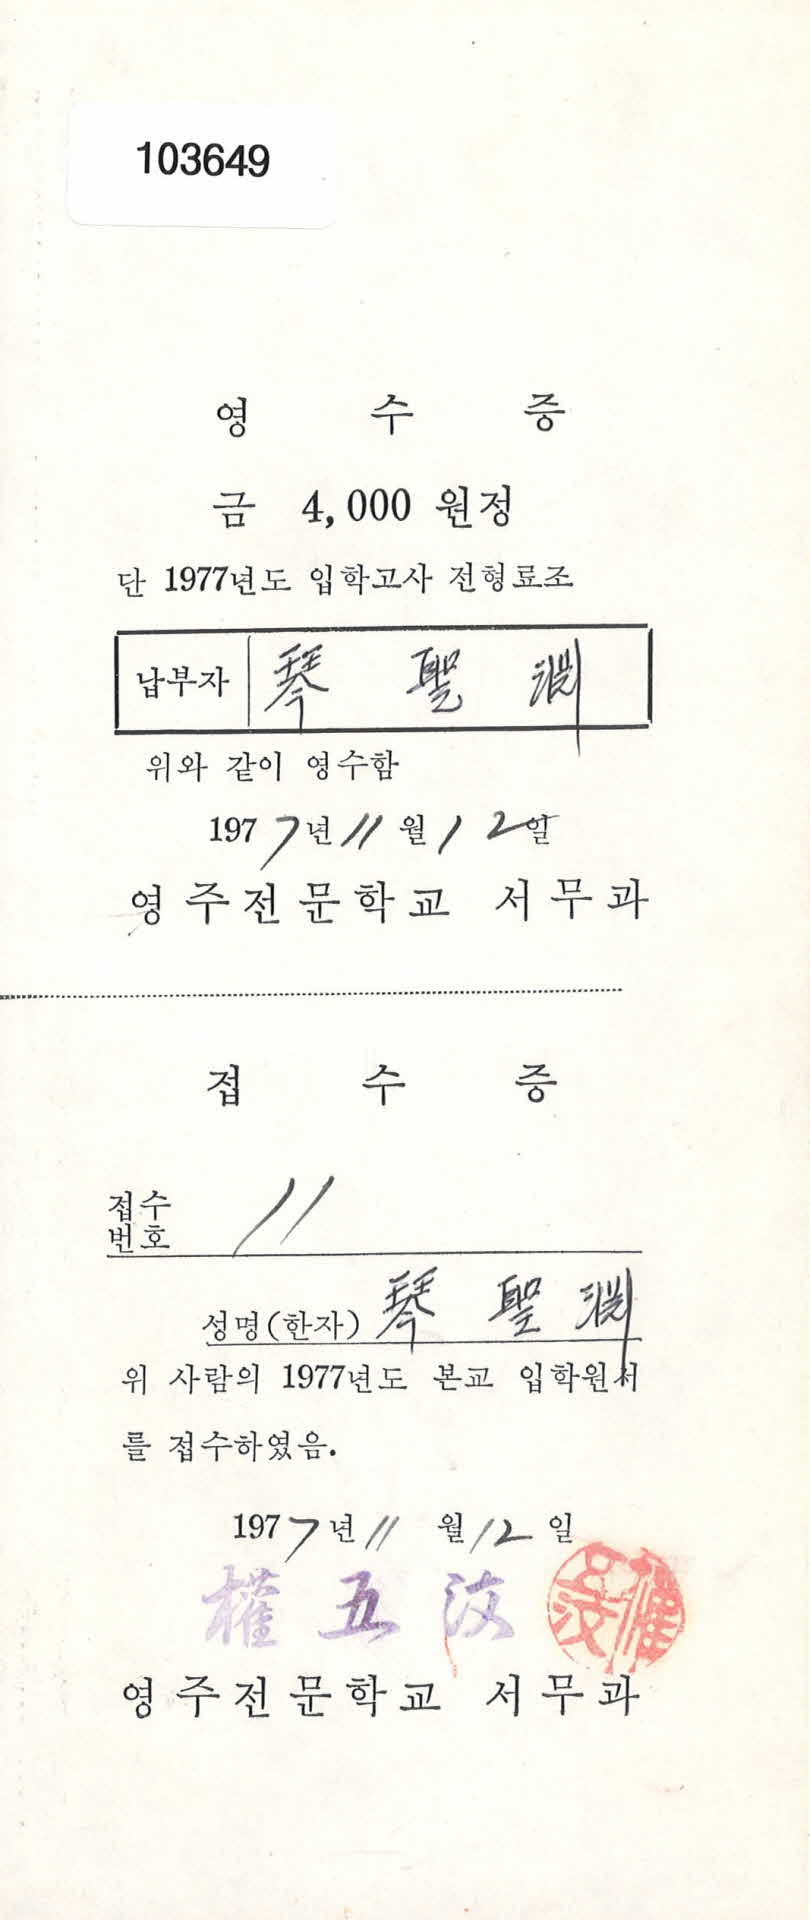 103649
영 수 증
금 4,000 원정
단 1977년도 입학고사 전형료조
납부자 琴 聖 淵
위와 같이 영수함
1977년 11월 12일
영주전문학교 서무과
접 수 증
접수번호 11
성명(한자) 琴 聖 淵
위 사람의 1977년도 본교 입학원서
를 접수하였음.
1977년 11월 12일
權 五 汶
영주전문학교 서무과